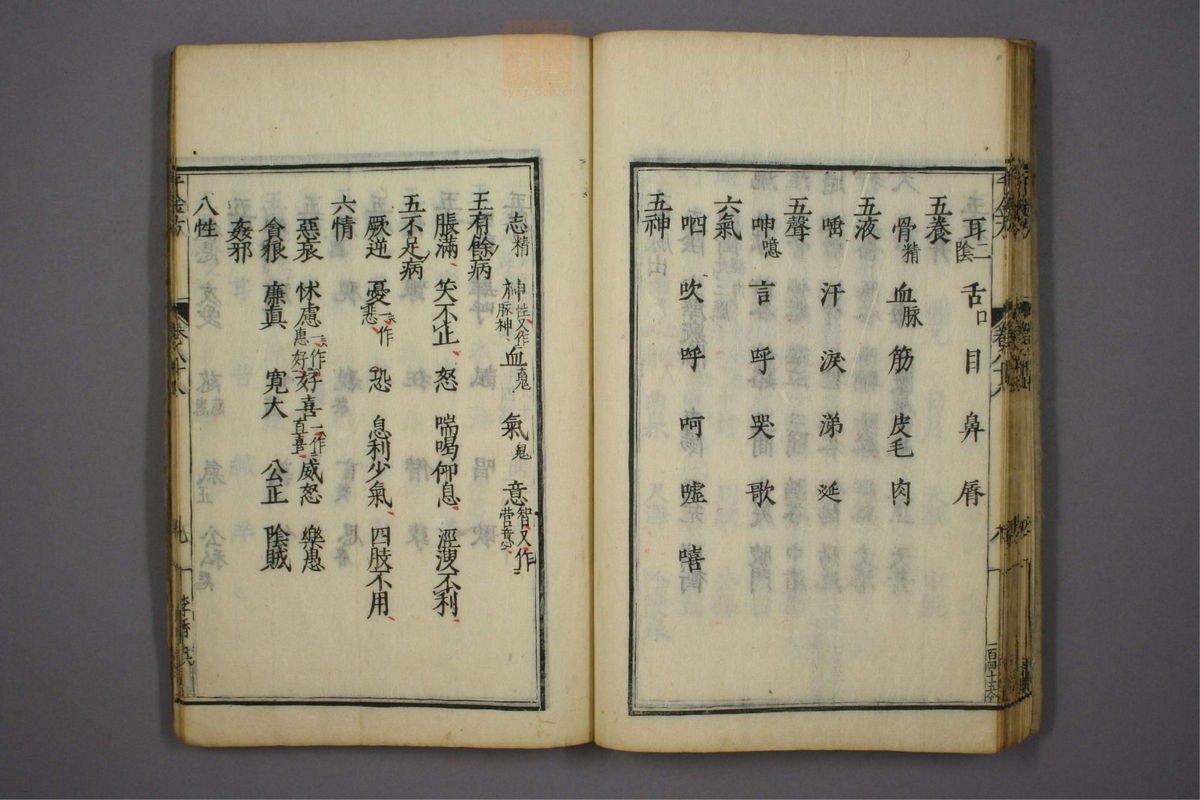 耳二陰 舌口 目 鼻 脣
五養
骨精 血脉 筋 皮毛 肉
五液
唾 汗 淚 涕 涎
五聲
呻噫 言 呼 哭 歌
六氣
呬 吹 呼 呵 噓 嘻
五神
志精 神性又作脉神 血䰟 氣䰟 意智又作营意
王有餘病
脹滿 笑不止 怒 喘喝仰息 涇溲不利
五不足病
厥逆 憂一作悲 恐 息利少氣 四肢不用
六情
惡哀 怵慮一作惠好 好喜一作直喜 威怒 樂愚
貪狠 廉貞 寬大 公正 陰賊
姦邪
八性
千金方
卷八十八
九
李香